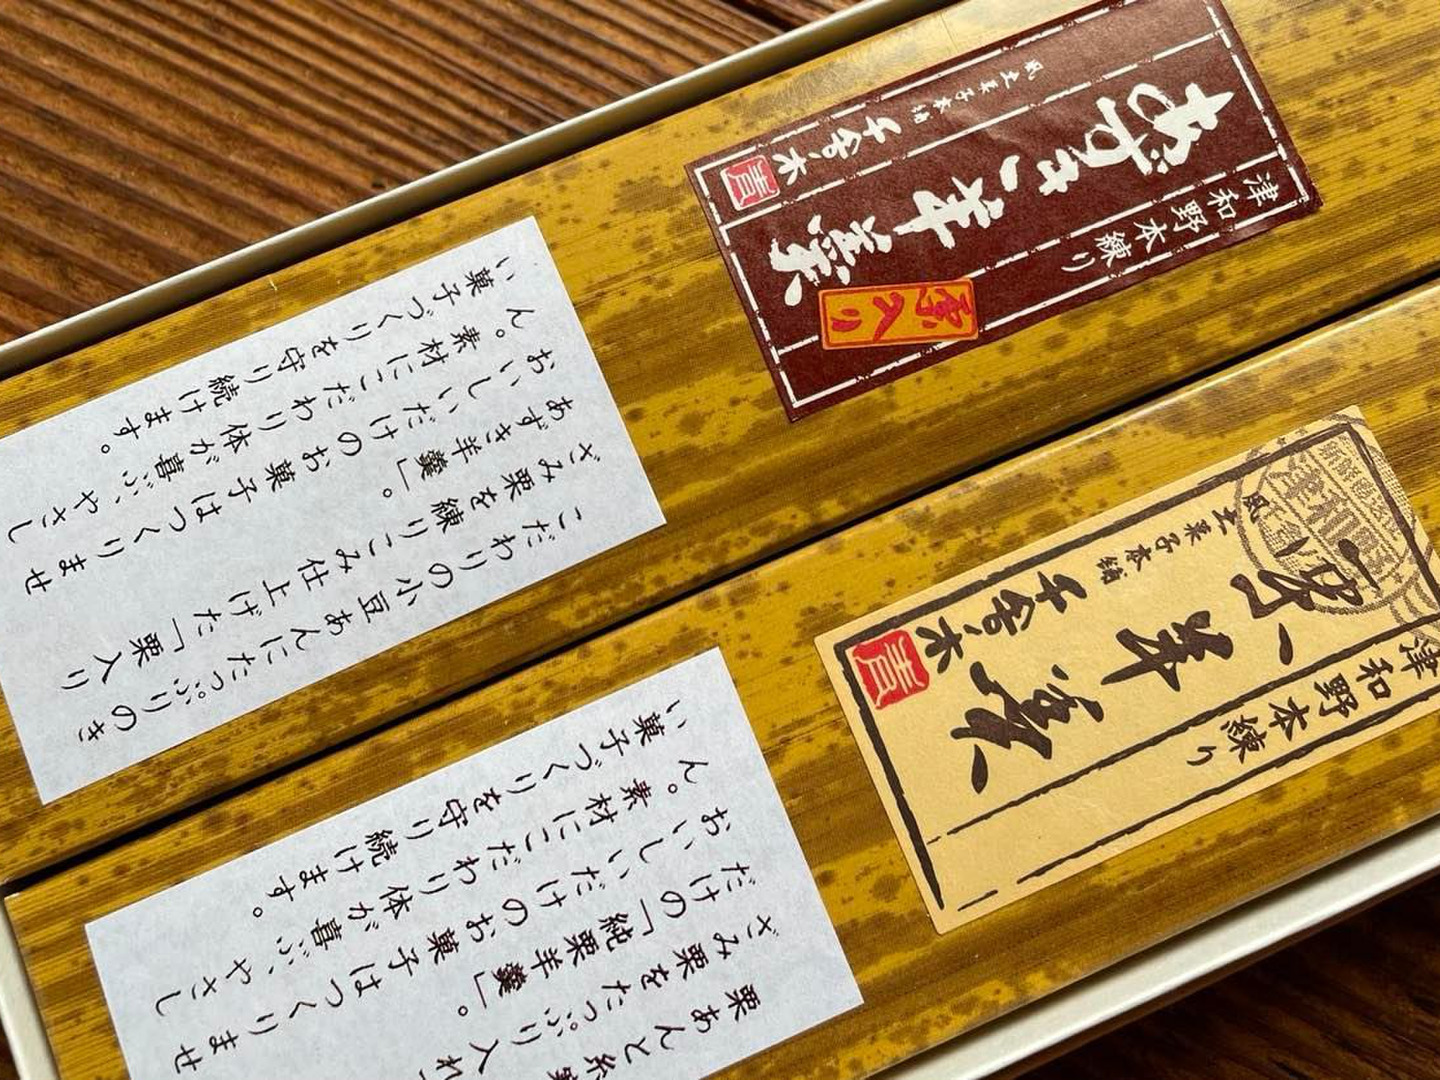 津和野本練り
あずき羊羹
栗入り
風土菓子本舗
こだわりの小豆あんにたっぷりのき
ざみ栗を練りこみ仕上げた「栗入り
あずき羊羹」。
おいしいだけのお菓子はつくりませ
ん。素材にこだわり体が喜ぶ、やさし
い菓子づくりを守り続けます。
津和野本練り
羊羹
風土菓子本舗
栗あんと糸
ざみ栗をたっぷり入れ
だけの「純栗羊羹」。
おいしいだけのお菓子はつくりませ
ん。素材にこだわり体が喜ぶ、やさし
い菓子づくりを守り続けます。